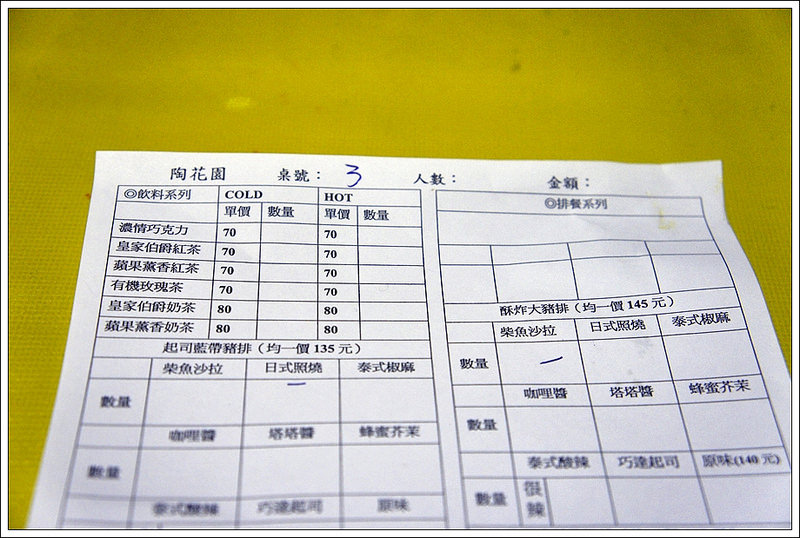 陶花園 桌號： 3 人數： 金額：
◎飲料系列 COLD HOT
單價 數量 單價 數量
濃情巧克力 70 70
皇家伯爵紅茶 70 70
蘋果薰香紅茶 70 70
有機玫瑰茶 70 70
皇家伯爵奶茶 80 80
蘋果薰香奶茶 80 80
起司藍帶豬排（均一價 135 元）
柴魚沙拉 日式照燒 泰式椒麻
數量 一
咖哩醬 塔塔醬 蜂蜜芥茉
數量
泰式酸辣 巧達起司 原味
◎排餐系列
酥炸大豬排（均一價 145 元）
柴魚沙拉 日式照燒 泰式椒麻
數量 一
咖哩醬 塔塔醬 蜂蜜芥茉
數量
泰式酸辣 巧達起司 原味(140 元)
數量 很辣